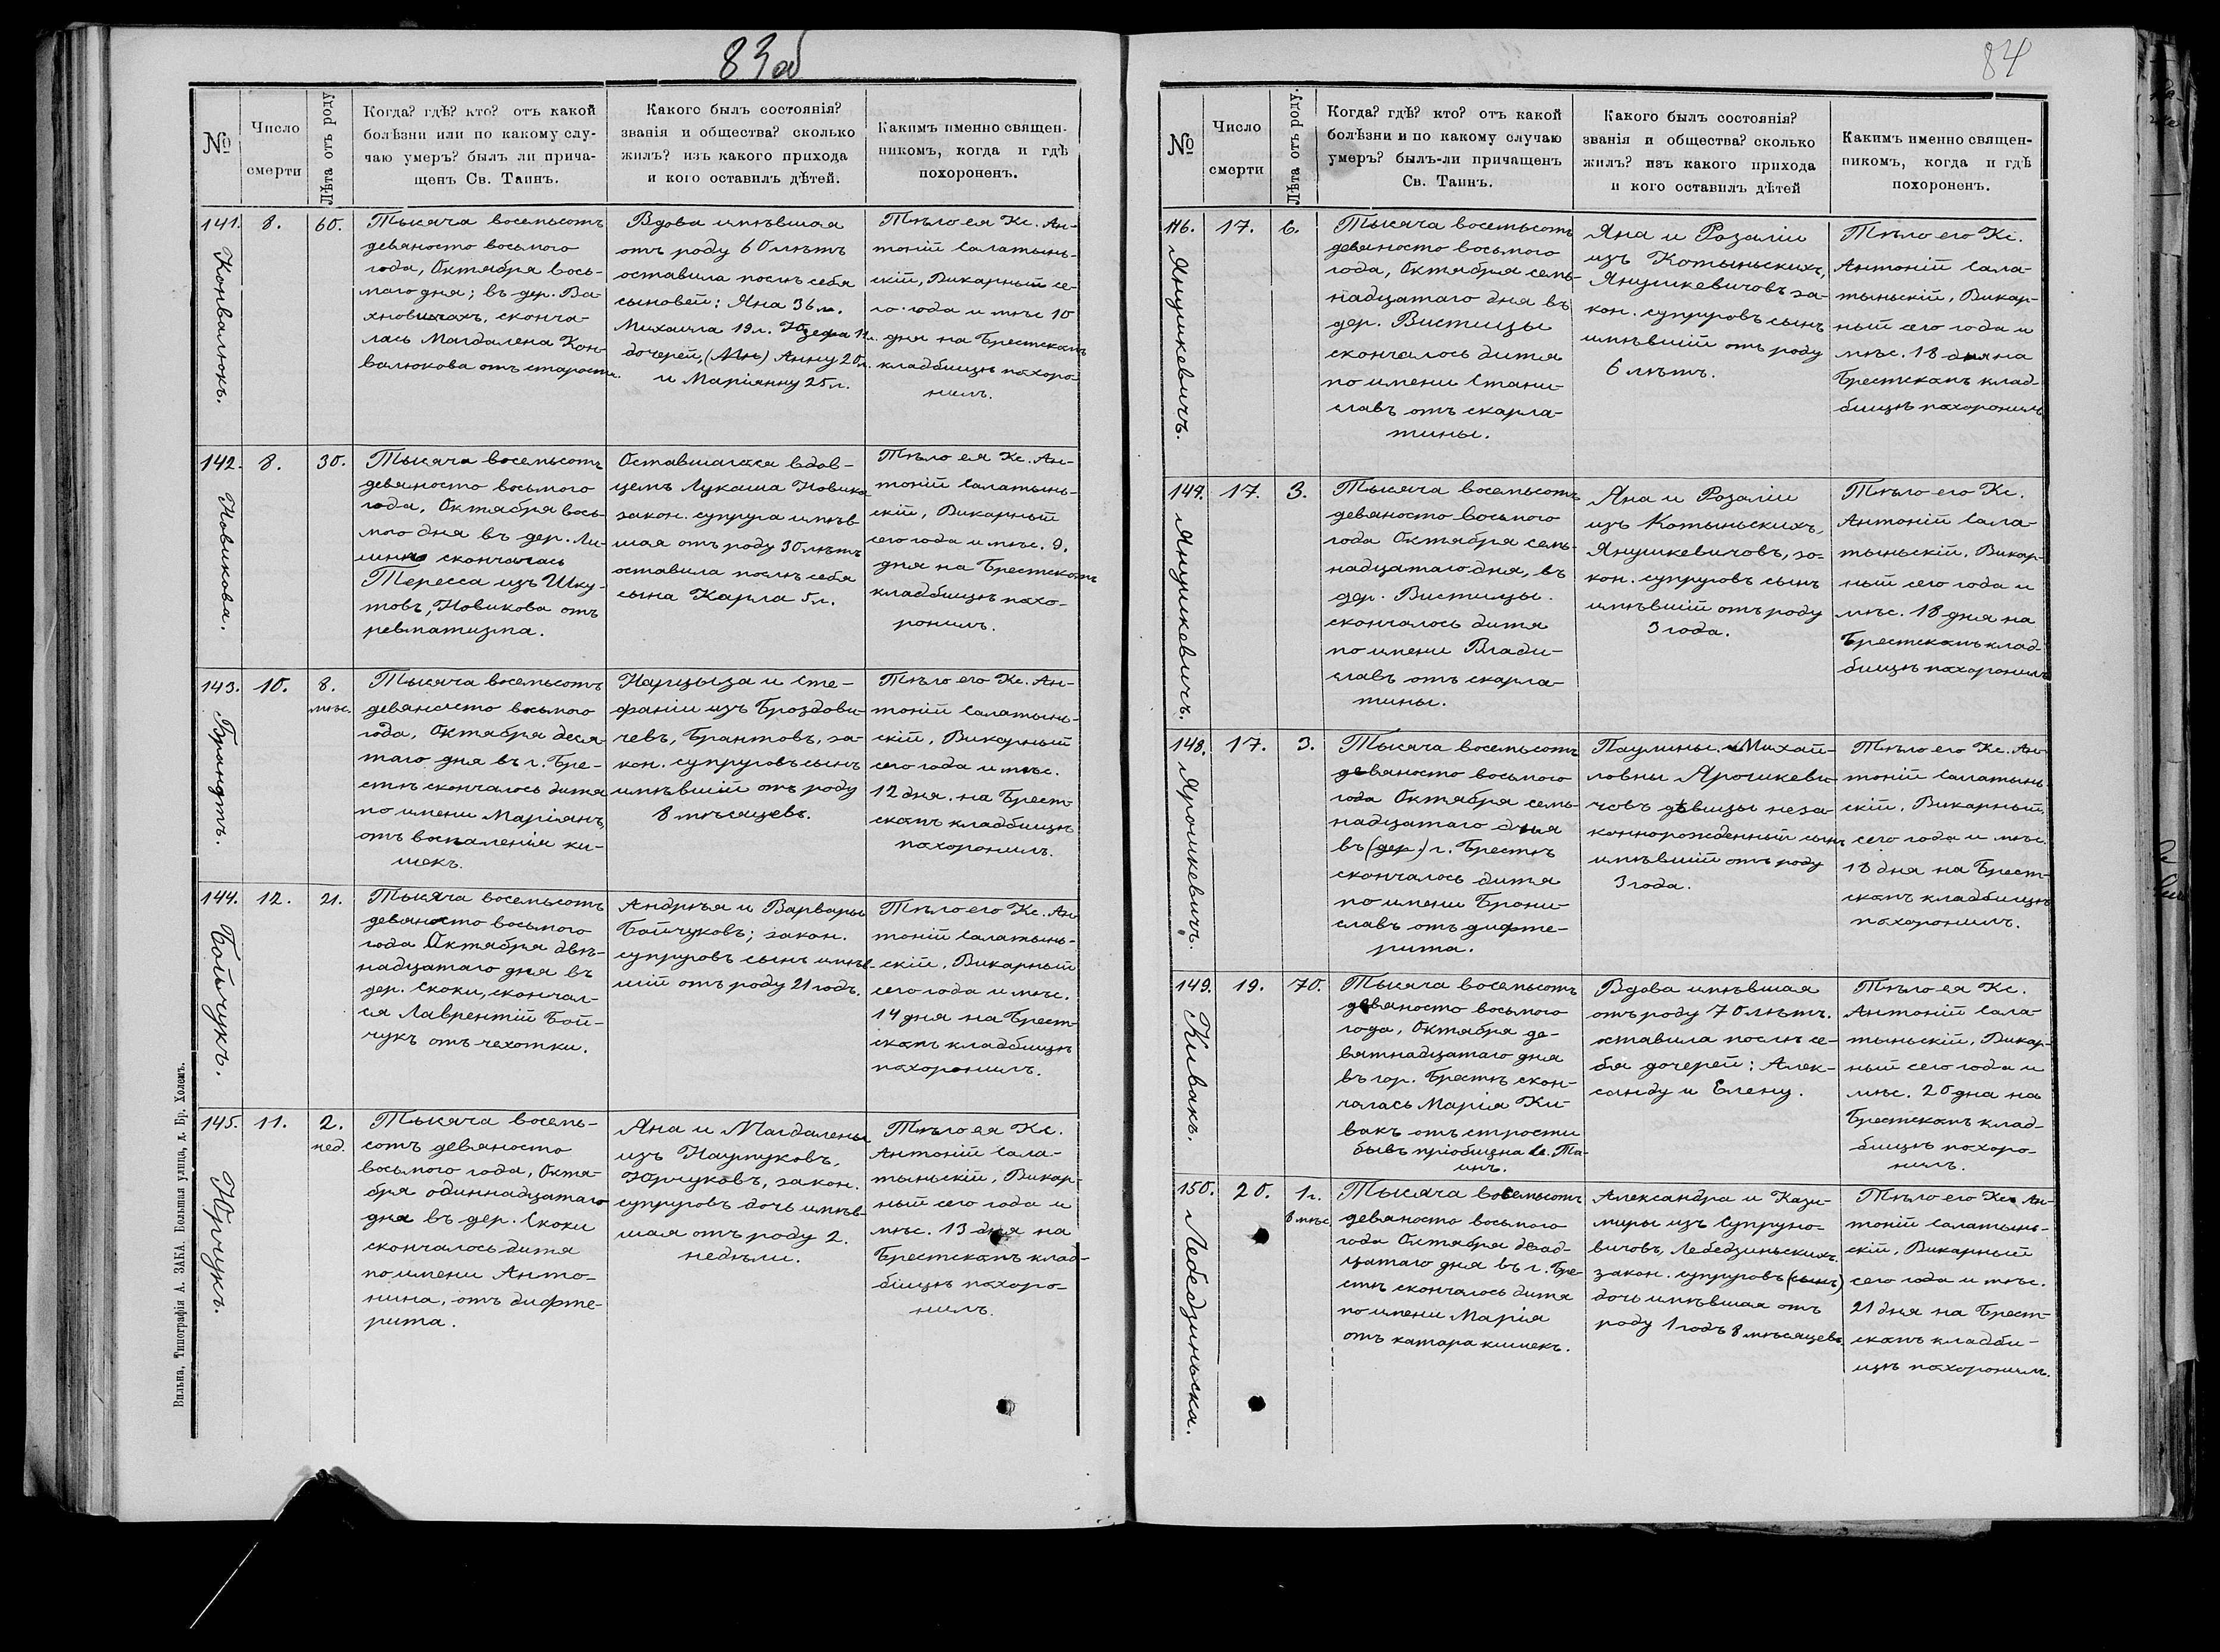 83об
№
Число
смерти
Лѣта отъ роду
Когда? гдѣ? кто? отъ какой
болѣзни или по какому слу-
чаю умеръ? былъ ли прича-
щенъ Св. Таинъ.
Какого былъ состоянія?
званія и общества? сколько
жилъ? изъ какого прихода
и кого оставилъ дѣтей.
Какимъ именно священ-
никомъ, когда и гдѣ
похороненъ.
141.
Конвалюкъ.
8.
60.
Тысяча восемьсотъ
девяносто восьмого
года, Октября вось-
маго дня; въ дер. Ва-
хновичахъ, сконча-
лась Магдалена Кон-
валюкова отъ старости.
Вдова имѣвшая
отъ роду 60 лѣтъ
оставила послѣ себя
сыновей: Яна 36 л.
Михаила 19 л. Юзефа 11 л.
дочерей, (Мн) Анну 20 л.
и Маріянну 25 л.
Тѣло ея Кс. Ан-
тоній Салатынь-
скій, Викарный се-
го года и мѣс 10
дня на Брестскомъ
кладбищѣ похоро-
нилъ.
142.
Новикова.
8.
30.
Тысяча восемьсотъ
девяносто восьмого
года, Октября вось-
мого дня въ дер. Ли-
шна скончалась
Тересса изъ Шку-
товъ, Новикова отъ
ревматизма.
Оставшагося вдов-
цемъ Лукаша Новика
закон. супруга имѣв
шая отъ роду 30 лѣтъ
оставила послѣ себя
сына Карла 5 л.
Тѣло ея Кс. Ан-
тоній Салатынь-
скій, Викарный
сего года и мѣс. 9.
дня на Брестскомъ
кладбищѣ похо-
ронилъ.
143.
Брандтъ.
10.
8.
мѣс.
Тысяча восемьсотъ
девяносто восьмого
года, Октября деся
таго дня въ г. Бре-
стѣ скончалось дитя
по имени Маріянъ
отъ воспаленія ки-
шекъ.
Нарцыза и Сте-
фаніи изъ Броздови-
чевъ, Брантовъ, за-
кон. супруговъ сынъ
имѣвшій отъ роду
8 мѣсяцевъ.
Тѣло его Кс. Ан-
тоній Салатынь-
скій, Викарный
сего года и мѣс.
12 дня на Брест-
скомъ кладбищѣ
похоронилъ.
144.
Бойчукъ.
12.
21.
Тысяча восемьсотъ
девяносто восьмого
года Октября двѣ-
надцатаго дня въ
дер. Скоки, скончал-
ся Лаврентій Бой-
чукъ отъ чехотки.
Андрѣя и Варвары
Бойчуковъ; закон.
супруговъ сынъ имѣв-
шій отъ роду 21 годъ.
Тѣло его Кс. Ан
тоній Салатынь-
скій, Викарный
сего года и мѣс.
14 дня на Брест-
скомъ кладбищѣ
похоронилъ.
145.
Юрчукъ.
11.
2.
нед.
Тысяча восемь-
сотъ девяносто
восьмого года, Октя-
бря одиннадцатаго
дня въ дер. Скоки
скончалось дитя
по имени Анто-
нина, отъ дифте-
рита.
Яна и Магдалены
изъ Наумуковъ,
Юрчуковъ, закон.
супруговъ дочь имѣв-
шая отъ роду 2.
недѣли.
Тѣло ея Кс.
Антоній Сала-
тыньскій, Викар-
ный сего года и
мѣс. 13 дня на
Брестскомъ клад-
бищѣ похоро-
нилъ.
Вильна, Типографія А. ЗАКА. Большая улица, д. Бр. Холемъ.
84
№
Число
смерти
Лѣта отъ роду.
Когда? гдѣ? кто? отъ какой
болѣзни и по какому случаю
умеръ? былъ-ли причащенъ
Св. Таинъ.
Какого былъ состоянія?
званія и общества? сколько
жилъ? изъ какого прихода
и кого оставилъ дѣтей
Какимъ именно священ-
никомъ, когда и гдѣ
похороненъ.
146.
Янушкевичъ.
17.
6.
Тысяча восемьсотъ
девяносто восьмого
года, Октября семь-
надцатаго дня въ
дер. Вистицы
скончалось дитя
по имени Стани-
славъ отъ скарла-
тины.
Яна и Розаліи
изъ Котыньскихъ,
Янушкевичовъ за-
кон. супруговъ сынъ
имѣвшій отъ роду
6 лѣтъ.
Тѣло его Кс.
Антоній Сала-
тыньскій, Викар-
ный сего года и
мѣс. 18 дня на
Брестскомъ клад-
бищѣ похоронилъ
147.
Янушкевичъ.
17.
3.
Тысяча восемьсотъ
девяносто восьмого
года Октября семь-
надцатаго дня, въ
дер. Вистицы.
скончалось дитя
по имени Влади-
славъ отъ скарла-
тины.
Яна и Розаліи
изъ Котыньскихъ,
Янушкевичовъ, за-
кон. супруговъ сынъ
имѣвшій отъ роду
3 года.
Тѣло его Кс.
Антоній Сала-
тыньскій, Викар-
ный сего года и
мѣс. 18 дня на
Брестскомъ клад-
бищѣ похоронилъ
148.
Ярошкевичъ.
17.
3.
Тысяча восемьсотъ
девяносто восьмого
года Октября семь-
надцатаго дня
въ (дер.) г. Брестѣ
скончалось дитя
по имени Брони-
славъ отъ дифте-
рита.
Паулины Михай-
ловны Ярошкеви-
човъ дѣвицы неза-
коннорожденный сынъ
имѣвшій отъ роду
3 года.
Тѣло его Кс. Ан
тоній Салатынь
скій, Викарный
сего года и мѣс.
18 дня на Брест-
скомъ кладбищѣ
похоронилъ.
149.
Кивакъ.
19.
70.
Тысяча восемьсотъ
девяносто восьмого
года, Октября де-
вятнадцатаго дня
въ гор. Брестѣ скон-
чалась Марія Ки-
вакъ отъ стрости
бывъ пріобщена Св. Та-
инъ.
Вдова имѣвшая
отъ роду 70 лѣтъ.
оставила послѣ се-
бя дочерей: Алек-
санду и Елену.
Тѣло ея Кс.
Антоній Сала-
тыньскій, Викар-
ный сего года и
мѣс. 20 дна на
Брестскомъ клад-
бищѣ похоро-
нилъ.
150.
Лебедзиньска.
20.
1 г.
8 мѣс
Тысяча восемьсотъ
девяносто восьмого
года Октября двад-
цатаго дня въ г. Бре-
стѣ скончалось дитя
по имени Марія
отъ катара кишекъ.
Александра и Кази-
миры изъ Супруно-
вичовъ, Лебедзиньскихъ
закон. супруговъ (сынъ)
дочь имѣвшая отъ
роду 1 годъ 8 мѣсяцевъ.
Тѣло его Кс. Ан-
тоній Салатынь-
скій, Викарный
сего года и мѣс.
21 дня на Брест-
скомъ кладби-
щѣ похоронилъ.